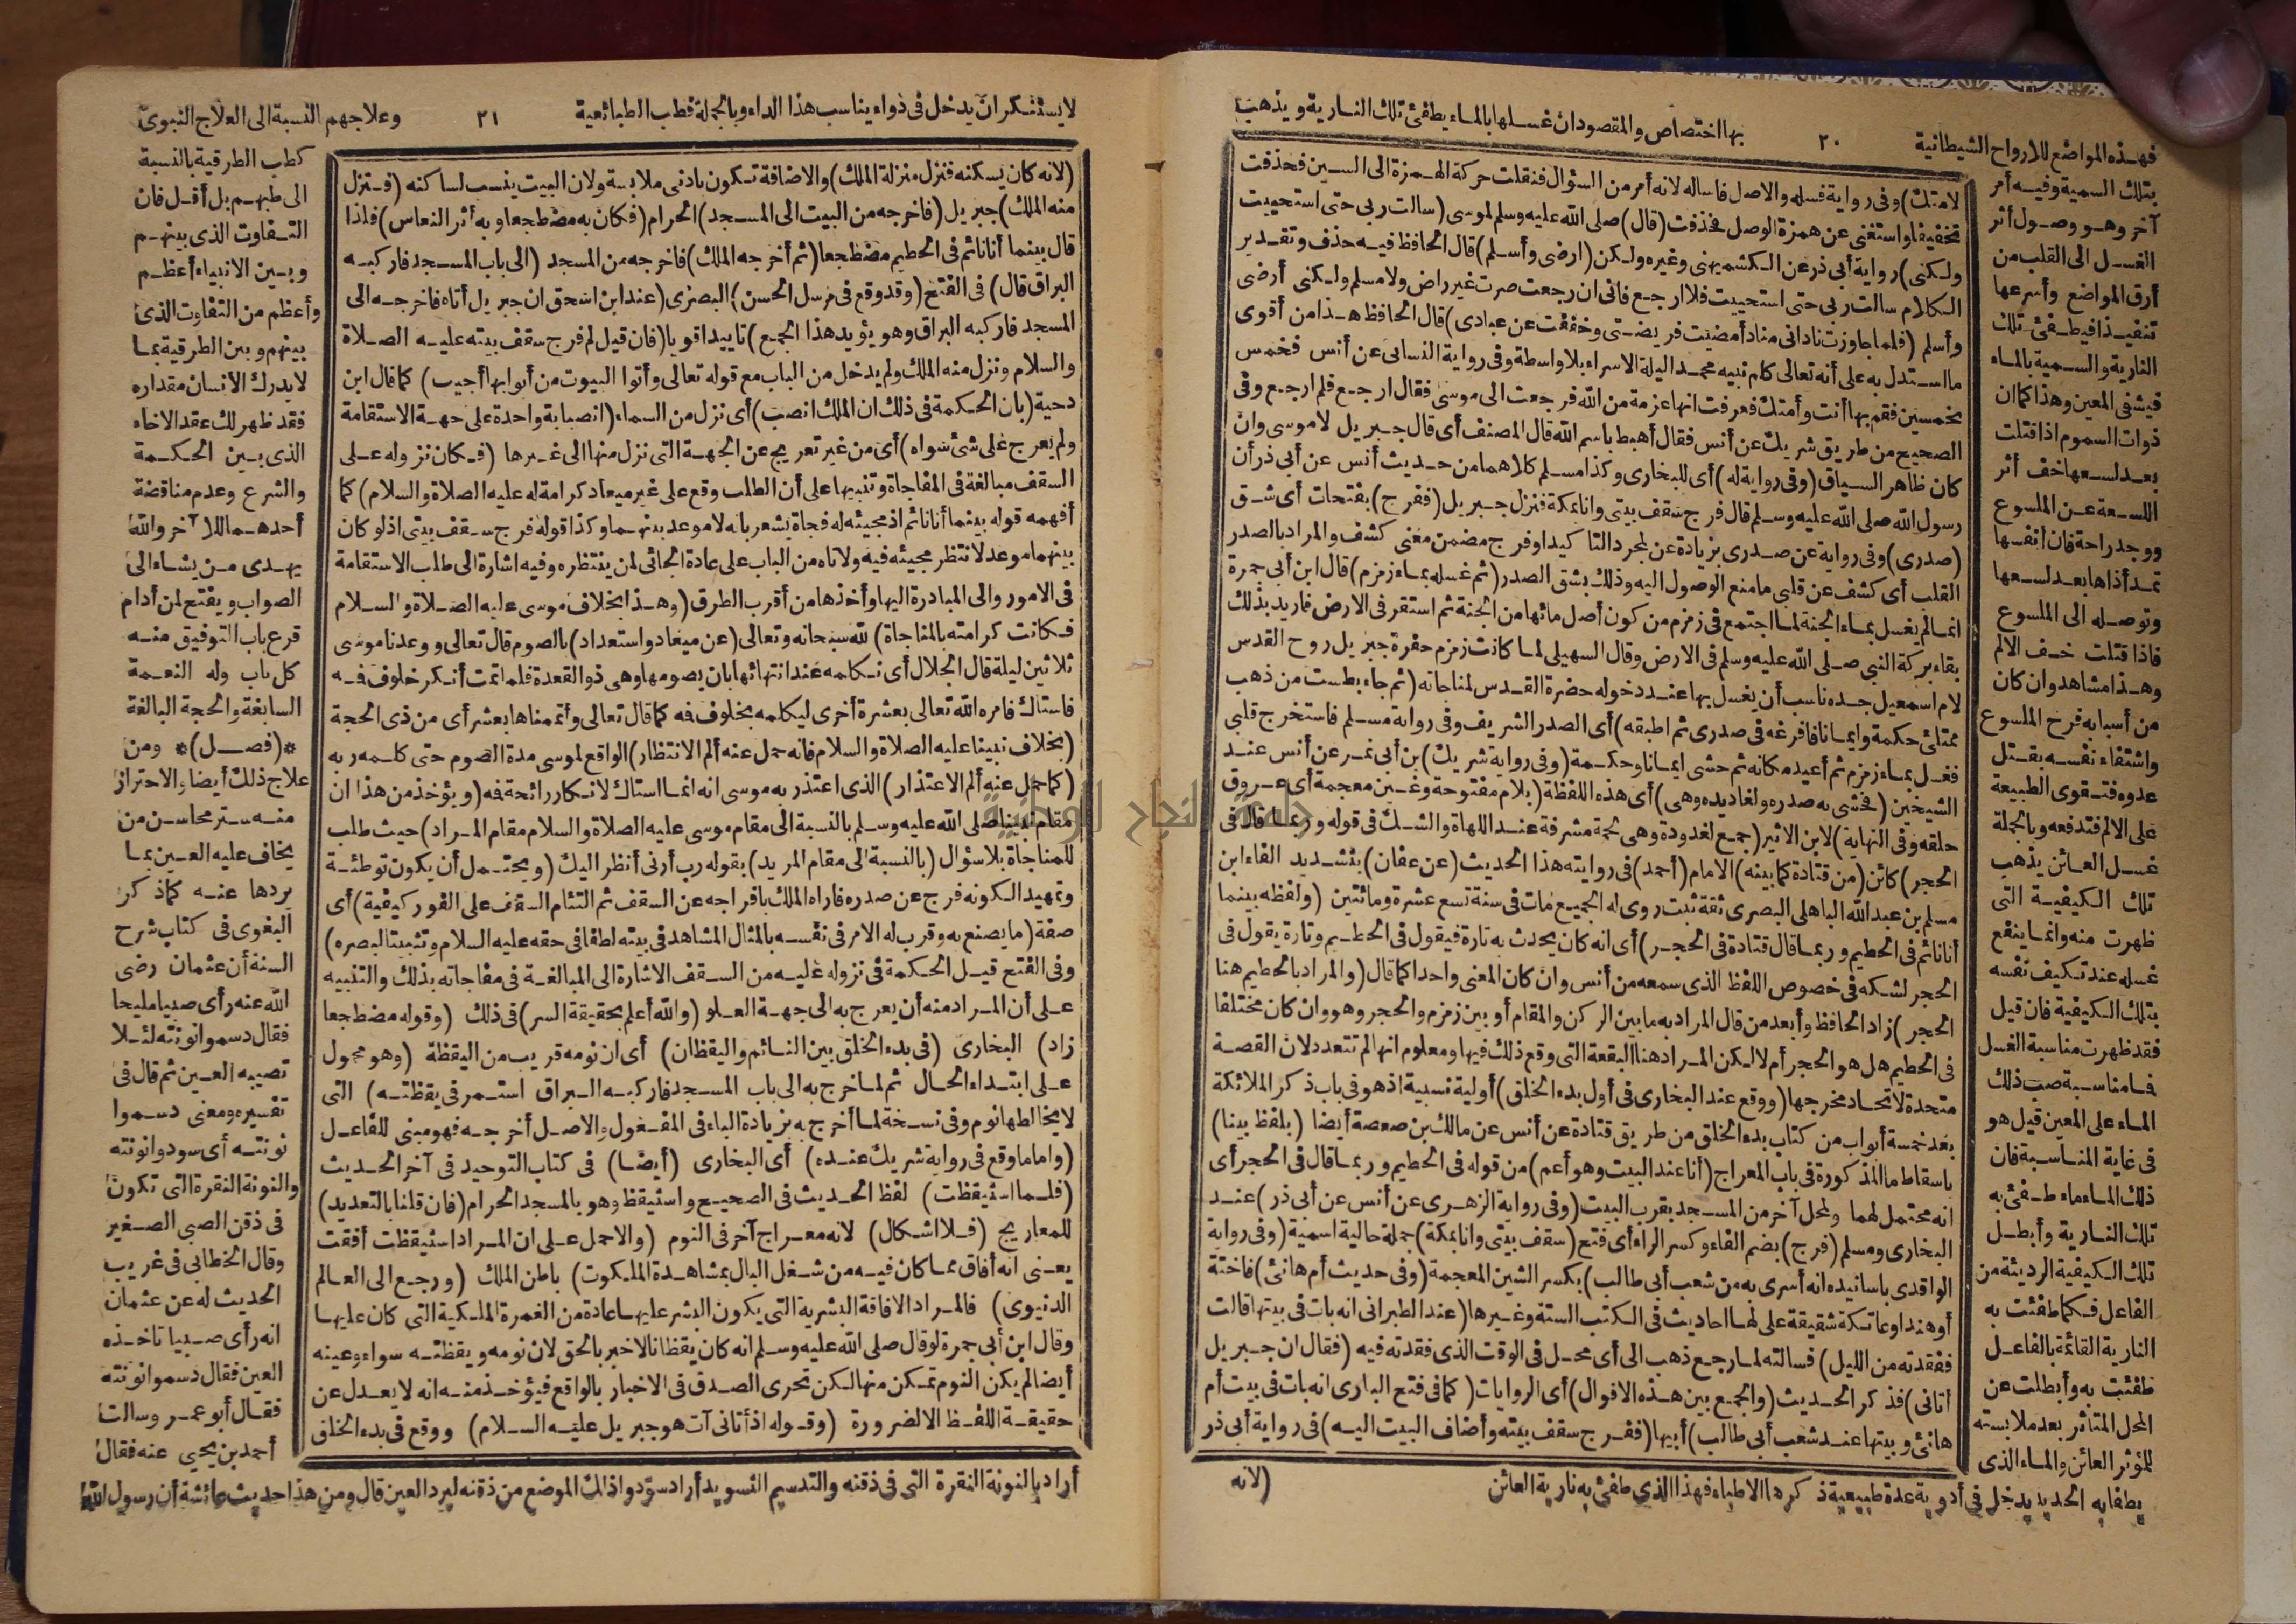 فهذه المواضع للارواح الشيطانية ٢٠ بها اختصاص والمقصود ان غسلها بالماء يطفئ تلك النارية ويذهب
بتلك السمية وفيه أمر
آخر وهو وصول أثر
الغسل الى القلب من
أرق المواضع وأسرعها
تنفيذا فيطفئ تلك
النارية والسمية بالماء
فيشفى المعين وهذا كما ان
ذوات السموم اذا قتلت
بعد لسعها خف أثر
اللسعة عن الملسوع
ووجد راحة فان أنفسها
تمد أذاها بعد لسعها
وتوصله الى الملسوع
فاذا قتلت خف الالم
وهذا مشاهد وان كان
من أسبابه فرح الملسوع
واشتفاء نفسه بقتل
عدوه فتقوى الطبيعة
على الالم فتدفعه وبالجملة
غسل العائن يذهب
تلك الكيفية التى
ظهرت منه وانما ينفع
غسله عند تكيف نفسه
بتلك الكيفية فان قيل
فقد ظهرت مناسبة الغسل
فما مناسبة صب ذلك
الماء على المعين قيل هو
فى غاية المناسبة فان
ذلك الماء ماء طفئ به
تلك النارية وأبطل
تلك الكيفية الرديئة من
الفاعل فكما طفئت به
النارية القائمة بالفاعل
طفئت به وأبطلت عن
المحل المتأثر بعد ملابسته
للمؤثر العائن والماء الذى
يطفأ به الحديد يدخل فى أدوية عدة طبيعية ذكرها الاطباء فهذا الذى طفئ به نارية العائن
لامتك) وفى رواية فسله والاصل فاساله لانه أمر من السؤال فنقلت حركة الهمزة الى السين فحذفت
تخفيفا واستغنى عن همزة الوصل فحذفت (قال) صلى الله عليه وسلم لموسى (سالت ربى حتى استحييت
ولكنى) رواية أبى ذر عن الكشميهنى وغيره ولكن (ارضى وأسلم) قال الحافظ فيه حذف وتقدير
الكلام سالت ربى حتى استحييت فلا ارجع فانى ان رجعت صرت غير راض ولا مسلم ولكنى أرضى
وأسلم (فلما جاوزت نادانى مناد أمضيت فريضتى وخففت عن عبادى) قال الحافظ هذا من أقوى
ما استدل به على أنه تعالى كلم نبيه محمد اليلة الاسراء بلا واسطة وفى رواية النسائى عن أنس فخمس
بخمسين فقم بها أنت وأمتك فعرفت انها عزمة من الله فرجعت الى موسى فقال ارجع فلم ارجع وفى
الصحيح من طريق شريك عن أنس فقال أهبط باسم الله قال المصنف أى قال جبريل لا موسى وان
كان ظاهر السياق (وفى رواية له) أى للبخارى وكذا مسلم كلاهما من حديث أنس عن أبى ذر أن
رسول الله صلى الله عليه وسلم قال فرج سقف بيتى وانا بمكة فنزل جبريل (ففرج) بفتحات أى شق
(صدرى) وفى رواية عن صدرى بزيادة عن لمجرد التاكيد او فرج مضمن معنى كشف والمراد بالصدر
القلب أى كشف عن قلبى ما منع الوصول اليه وذلك بشق الصدر (ثم غسله بماء زمزم) قال ابن أبى جمرة
انما لم يغسل بماء الجنة لما اجتمع فى زمزم من كون أصل مائها من الجنة ثم استقر فى الارض فاريد بذلك
بقاء بركة النبى صلى الله عليه وسلم فى الارض وقال السهيلى لما كانت زمزم حفرة جبريل روح القدس
لام اسمعيل جده ناسب أن يغسل بها عند دخوله حضرة القدس لمناجاته (ثم جاء بطست من ذهب
ممتلئ حكمة وايمانا فافرغه فى صدرى ثم اطبقه) أى الصدر الشريف وفى رواية مسلم فاستخرج قلبى
فغسل بماء زمزم ثم أعيد مكانه ثم حشى ايمانا وحكمة (وفى رواية شريك) بن أبى نمر عن أنس عند
الشيخين (فحشى به صدره ولغاديده وهى) أى هذه اللفظة (بلام مفتوحة وغين معجمة أى عروق
حلقه وفى النهاية) لابن الاثير (جمع لغدودة وهى لحمة مشرفة عند اللهاة والشك فى قوله وربما قال فى
الحجر) كائن (من قتادة كما بينه) الامام (أحمد) فى روايته هذا الحديث (عن عفان) بتشديد الفاء ابن
مسلم بن عبد الله الباهلى البصرى ثقة ثبت روى له الجميع مات فى سنة تسع عشرة ومائتين (ولفظه بينما
أنا نائم فى الحطيم وربما قال قتادة فى الحجر) أى انه كان يحدث به تارة فيقول فى الحطيم وتارة يقول فى
الحجر لشكه فى خصوص اللفظ الذى سمعه من أنس وان كان المعنى واحدا كما قال (والمراد بالحطيم هنا
الحجر) زاد الحافظ وأبعد من قال المراد به ما بين الركن والمقام أو بين زمزم والحجر وهو وان كان مختلفا
فى الحطيم هل هو الحجر أم لا لكن المراد هنا البقعة التى وقع ذلك فيها ومعلوم انها لم تتعدد لان القصة
متحدة لاتحاد مخرجها (ووقع عند البخارى فى أول بدء الخلق) أولية نسبية اذ هو فى باب ذكر الملائكة
بعد خمسة أبواب من كتاب بدء الخلق من طريق قتادة عن أنس عن مالك بن صعصة أيضا (بلفظ بينا)
باسقاط ما المذكورة فى باب المعراج (أنا عند البيت وهو أعم) من قوله فى الحطيم وربما قال فى الحجر أى
انه محتمل لهما ولمحل آخر من المسجد بقرب البيت (وفى رواية الزهرى عن أنس عن أبى ذر) عند
البخارى ومسلم (فرج) بضم الفاء وكسر الراء أى فتح (سقف بيتى وانا بمكة) جملة حالية اسمية (وفى رواية
الواقدى باسانيده انه أسرى به من شعب أبى طالب) بكسر الشين المعجمة (وفى حديث أم هانئ) فاختة
أو هند او عاتكة شقيقة على لها احاديث فى الكتب الستة وغيرها (عند الطبرانى انه بات فى بيتها قالت
ففقدته من الليل) فسالته لما رجع ذهب الى أى محل فى الوقت الذى فقدته فيه (فقال ان جبريل
أتانى) فذكر الحديث (والجمع بين هذه الاقوال) أى الروايات (كما فى فتح البارى انه بات فى بيت أم
هانئ وبيتها عند شعب أبى طالب) أبيها (ففرج سقف بيته وأضاف البيت اليه) فى رواية أبى ذر
(لانه
لا يستنكر ان يدخل فى دواء يناسب هذا الداء وبالجملة فطب الطبائعية ٢١ وعلاجهم النسبة الى العلاج النبوى
(لانه كان يسكنه فنزل منزلة الملك) والاضافة تكون بادنى ملابسة ولان البيت ينسب لساكنه (فنزل
منه الملك) جبريل (فاخرجه من البيت الى المسجد) الحرام (فكان به مضطجعا وبه أثر النعاس) فلذا
قال بينما أنا نائم فى الحطيم مضطجعا (ثم أخرجه الملك) فاخرجه من المسجد (الى باب المسجد فاركبه
البراق قال) فى الفتح (وقد وقع فى مرسل الحسن) البصرى (عند ابن اسحق ان جبريل أتاه فاخرجه الى
المسجد فاركبه البراق وهو يؤيد هذا الجمع) تاييدا قويا (فان قيل لم فرج سقف بيته عليه الصلاة
والسلام ونزل منه الملك ولم يدخل من الباب مع قوله تعالى وأتوا البيوت من أبوابها أجيب) كما قال ابن
دحية (بان الحكمة فى ذلك ان الملك انصب) أى نزل من السماء (انصبابة واحدة على جهة الاستقامة
ولم يعرج على شئ سواه) أى من غير تعريج عن الجهة التى نزل منها الى غيرها (فكان نزوله على
السقف مبالغة فى المفاجاة وتنبيها على أن الطلب وقع على غير ميعاد كرامة له عليه الصلاة والسلام) كما
أفهمه قوله بينما أنا نائم اذ مجيئه له فجاة يشعر بانه لا موعد بينهما وكذا قوله فرج سقف بيتى اذ لو كان
بينهما موعد لانتظر مجيئه فيه ولاتاه من الباب على عادة الجائى لمن ينتظره وفيه اشارة الى طلب الاستقامة
فى الامور والى المبادرة اليها وأخذها من أقرب الطرق (وهذا بخلاف موسى عليه الصلاة والسلام
فكانت كرامته بالمناجاة) لله سبحانه وتعالى (عن ميعاد واستعداد) بالصوم قال تعالى ووعدنا موسى
ثلاثين ليلة قال الجلال أى نكلمه عند انتهائها بان يصومها وهى ذو القعدة فلما تمت أنكر خلوف فه
فاستاك فامره الله تعالى بعشرة أخرى ليكلمه بخلوف فه كما قال تعالى وأتممناها بعشر أى من ذى الحجة
(بخلاف نبينا عليه الصلاة والسلام فانه حمل عنه ألم الانتظار) الواقع لموسى مدة الصوم حتى كلمه ربه
(كما حمل عنه ألم الاعتذار) الذى اعتذر به موسى انه انما استاك لانكار رائحة فه (ويؤخذ من هذا ان
مقام نبينا صلى الله عليه وسلم بالنسبة الى مقام موسى عليه الصلاة والسلام مقام المراد) حيث طلب
للمناجاة بلا سؤال (بالنسبة الى مقام المريد) بقوله رب أرنى أنظر اليك (ويحتمل أن يكون توطئة
وتمهيدا لكونه فرج عن صدره فاراه الملك بافراجه عن السقف ثم التئام السقف على الفور كيفية) أى
صفة (ما يصنع به وقرب له الامر فى نفسه بالمثال المشاهد فى بيته لطفا فى حقه عليه السلام وتثبيتا لبصره)
وفى الفتح قيل الحكمة فى نزوله عليه من السقف الاشارة الى المبالغة فى مفاجاته بذلك والتنبيه
على أن المراد منه أن يعرج به الى جهة العلو (والله أعلم بحقيقة السر) فى ذلك (وقوله مضطجعا
زاد) البخارى (فى بدء الخلق بين النائم واليقظان) أى ان نومه قريب من اليقظة (وهو محمول
على ابتداء الحال ثم لما خرج به الى باب المسجد فاركبه البراق استمر فى يقظته) التى
لا يخالطها نوم وفى نسخة لما أخرج به بزيادة الباء فى المفعول والاصل أخرجه فهو مبنى للفاعل
(واما ما وقع فى رواية شريك عنده) أى البخارى (أيضا) فى كتاب التوحيد فى آخر الحديث
(فلما استيقظت) لفظ الحديث فى الصحيح واستيقظ وهو بالمسجد الحرام (فان قلنا بالتعديد)
للمعاريج (فلا اشكال) لانه معراج آخر فى النوم (والا حمل على ان المراد استيقظت أفقت
يعنى انه أفاق مما كان فيه من شغل البال بمشاهدة الملكوت) باطن الملك (ورجع الى العالم
الدنيوى) فالمراد الافاقة البشرية التى يكون البشر عليها عادة من الغمرة الملكية التى كان عليها
وقال ابن أبى جمرة لو قال صلى الله عليه وسلم انه كان يقظانا لاخبر بالحق لان نومه ويقظته سواء وعينه
أيضا لم يكن النوم تمكن منها لكن تحرى الصدق فى الاخبار بالواقع فيؤخذ منه انه لا يعدل عن
حقيقة اللفظ الا لضرورة (وقوله اذ أتانى آت هو جبريل عليه السلام) ووقع فى بدء الخلق
كطب الطرقية بالنسبة
الى طبهم بل أقل فان
التفاوت الذى بينهم
وبين الانبياء أعظم
وأعظم من التفاوت الذى
بينهم وبين الطرقية بما
لا يدرك الانسان مقداره
فقد ظهر لك عقد الاخاء
الذى بين الحكمة
والشرع وعدم مناقضة
أحدهما للآخر والله
يهدى من يشاء الى
الصواب ويفتح لمن أدام
قرع باب التوفيق منه
كل باب وله النعمة
السابغة والحجة البالغة
*(فصل)* ومن
علاج ذلك أيضا والاحتراز
منه ستر محاسن من
يخاف عليه العين بما
يردها عنه كما ذكر
البغوى فى كتاب شرح
السنة أن عثمان رضى
الله عنه رأى صبيا مليحا
فقال دسموا نونته لئلا
تصيبه العين ثم قال فى
تفسيره ومعنى دسموا
نونته أى سودوا نونته
والنونة النقرة التى تكون
فى ذقن الصبى الصغير
وقال الخطابى فى غريب
الحديث له عن عثمان
انه رأى صبيا تاخذه
العين فقال دسموا نونته
فقال أبو عمر وسالت
أحمد بن يحيى عنه فقال
أراد بالنونة النقرة التى فى ذقنه والتدسيم التسويد أراد سودوا ذلك الموضع من ذقنه ليرد العين قال ومن هذا حديث عائشة أن رسول الله
جامعة النجاح الوطنية